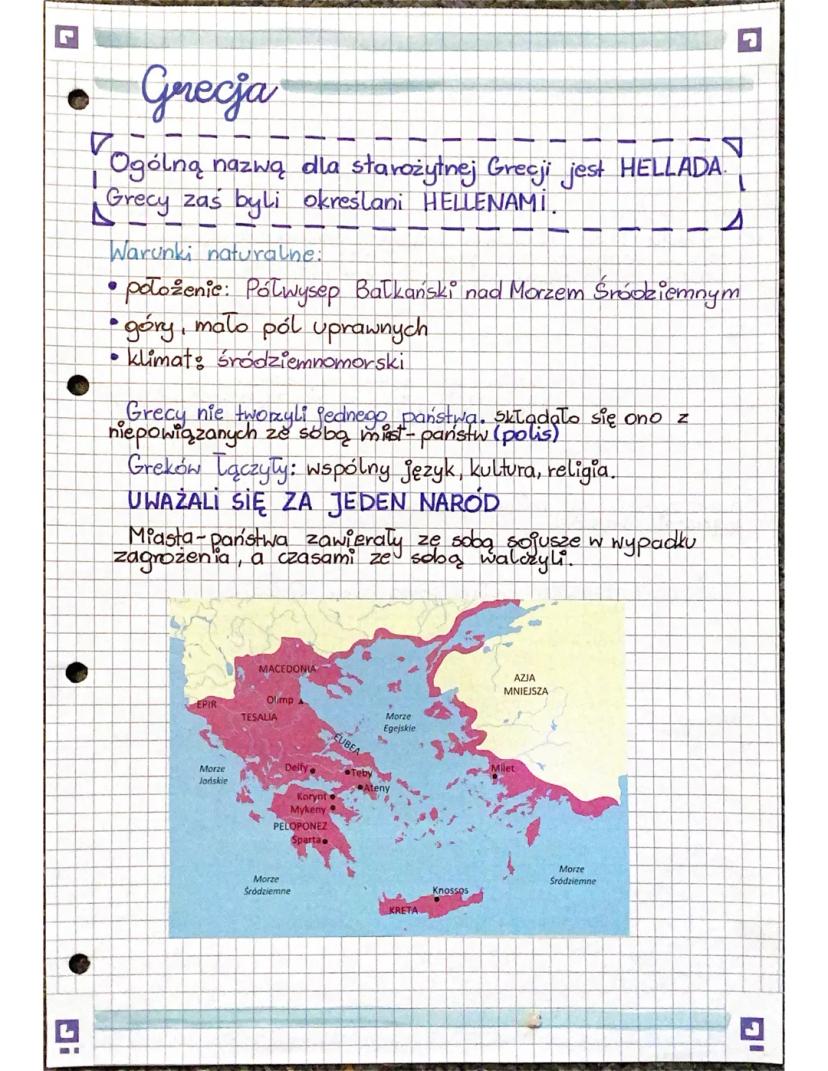 Grecja
Ogólną nazwą dla starożytnej Grecji jest HELLADA.
Grecy zaś byli określani HELLENAMI.
Warunki naturalne:
• położenie: Półwysep Bałkański nad Morzem Śródziemnym
• góry, mało pól uprawnych
• klimat: śródziemnomorski
Grecy nie tworzyli jednego państwa. składało się ono z
niepowiązanych ze sobą miast-państw (polis)
Greków łączyły: wspólny język, kultura, religia.
UWAŻALI SIĘ ZA JEDEN NARÓD
Miasta-państwa zawierały ze sobą sojusze w wypadku
zagrożenia, a czasami ze sobą walczyli.
MACEDONIA
AZJA
MNIEJSZA
EPIR
Olimp
TESALIA
Morze
Egejskie
EUBEA
Morze
Jońskie
Delfy
Teby
Milet
Ateny
Korynt
Mykeny
PELOPONEZ
Sparta
Morze
Śródziemne
Morze
Śródziemne
Knossos
KRETA